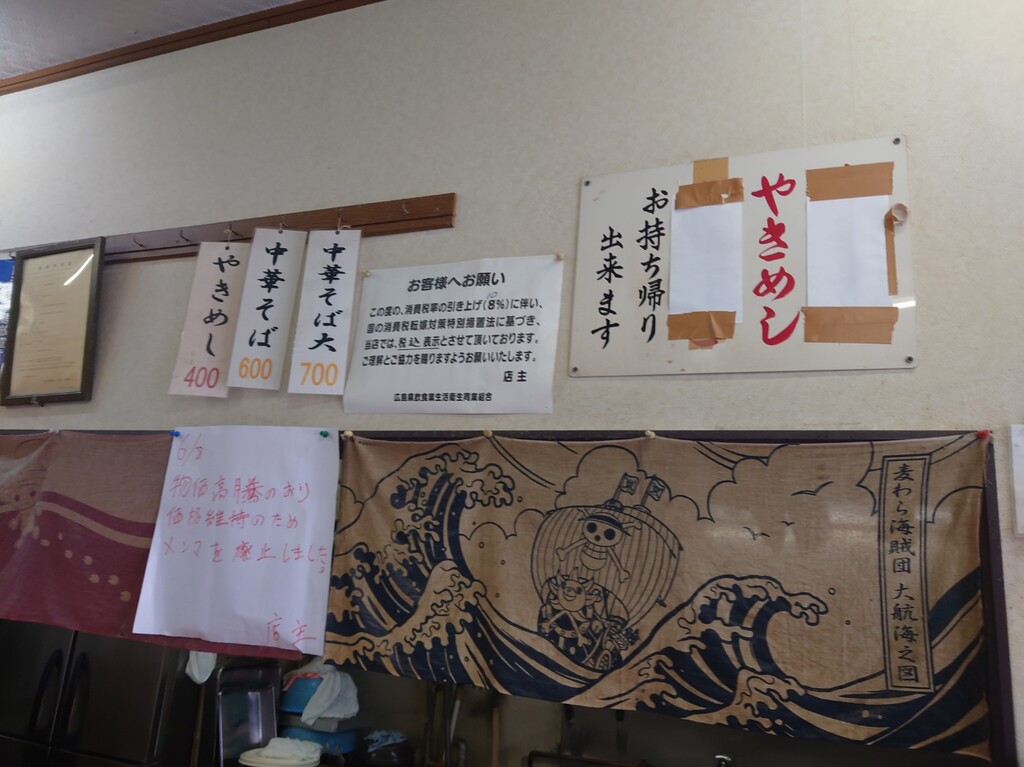 やきめし
400
中華そば
600
中華そば大
700
お客様へお願い
この度の、消費税率の引き上げ(8%)に伴い、
10
国の消費税転嫁対策特別措置法に基づき、
当店では、税込表示とさせて頂いております。
ご理解とご協力を賜りますようお願いいたします。
店主
広島県飲食業生活衛生同業組合
やきめし
お持ち帰り
出来ます
6/8
物価高騰のおり
価格維持のため
メンマを廃止しました。
店主
麦わら海賊団 大航海之図